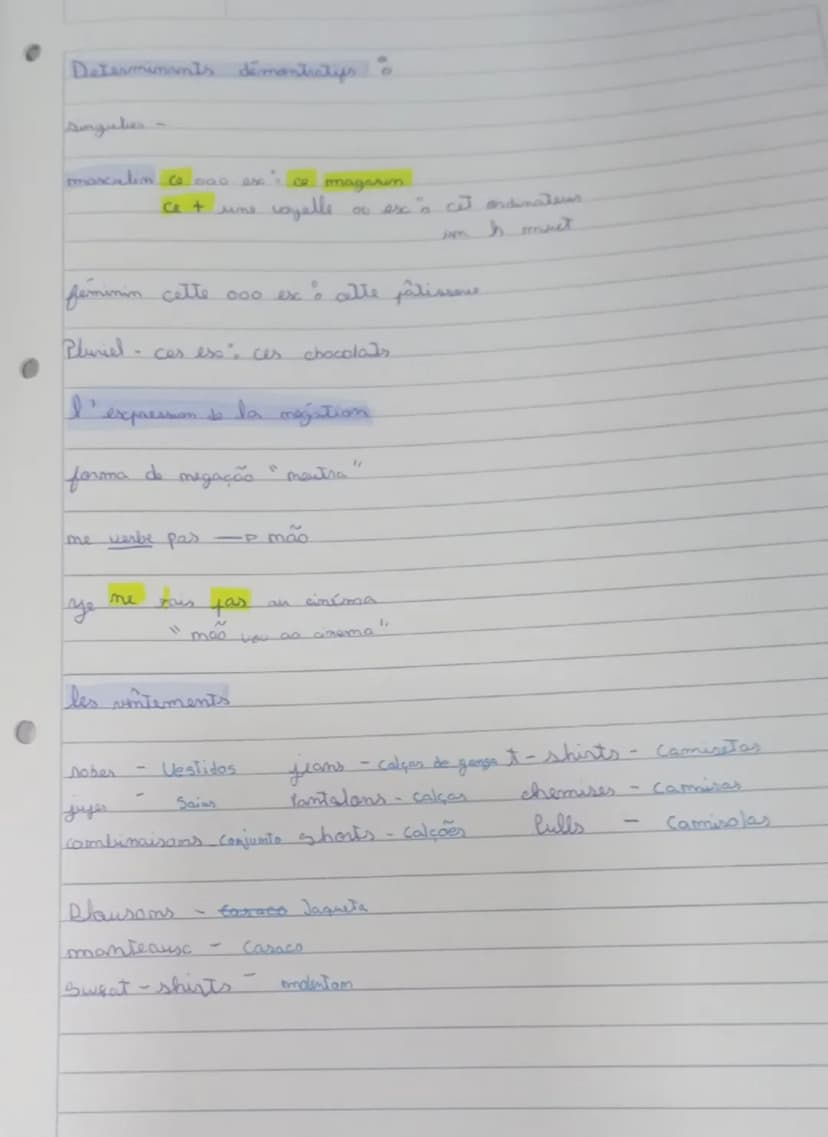 Determinants démontratifs :
singulier -
masculin ce ooo ex: ce magasin
ce + une voyelle ou ex: cet ordinateur
um h muet
féminin cette ooo ex: cette pâtisserie
Pluriel - ces ex: ces chocolats
l'expression de la négation
forma de negação "neutra"
ne verbe pas → não
ne pas au cinéma
"não vou ao cinema"
les vêtements
robes - Vestidos jeans - calças de ganga t-shirts - camisetas
jupes - Saias Pantalons - calças chemises - camisas
combinaisons conjunto shorts - calções Pulls - camisolas
Blousons - casaco Jaqueta
manteaux - casaco
Sweat-shirts -